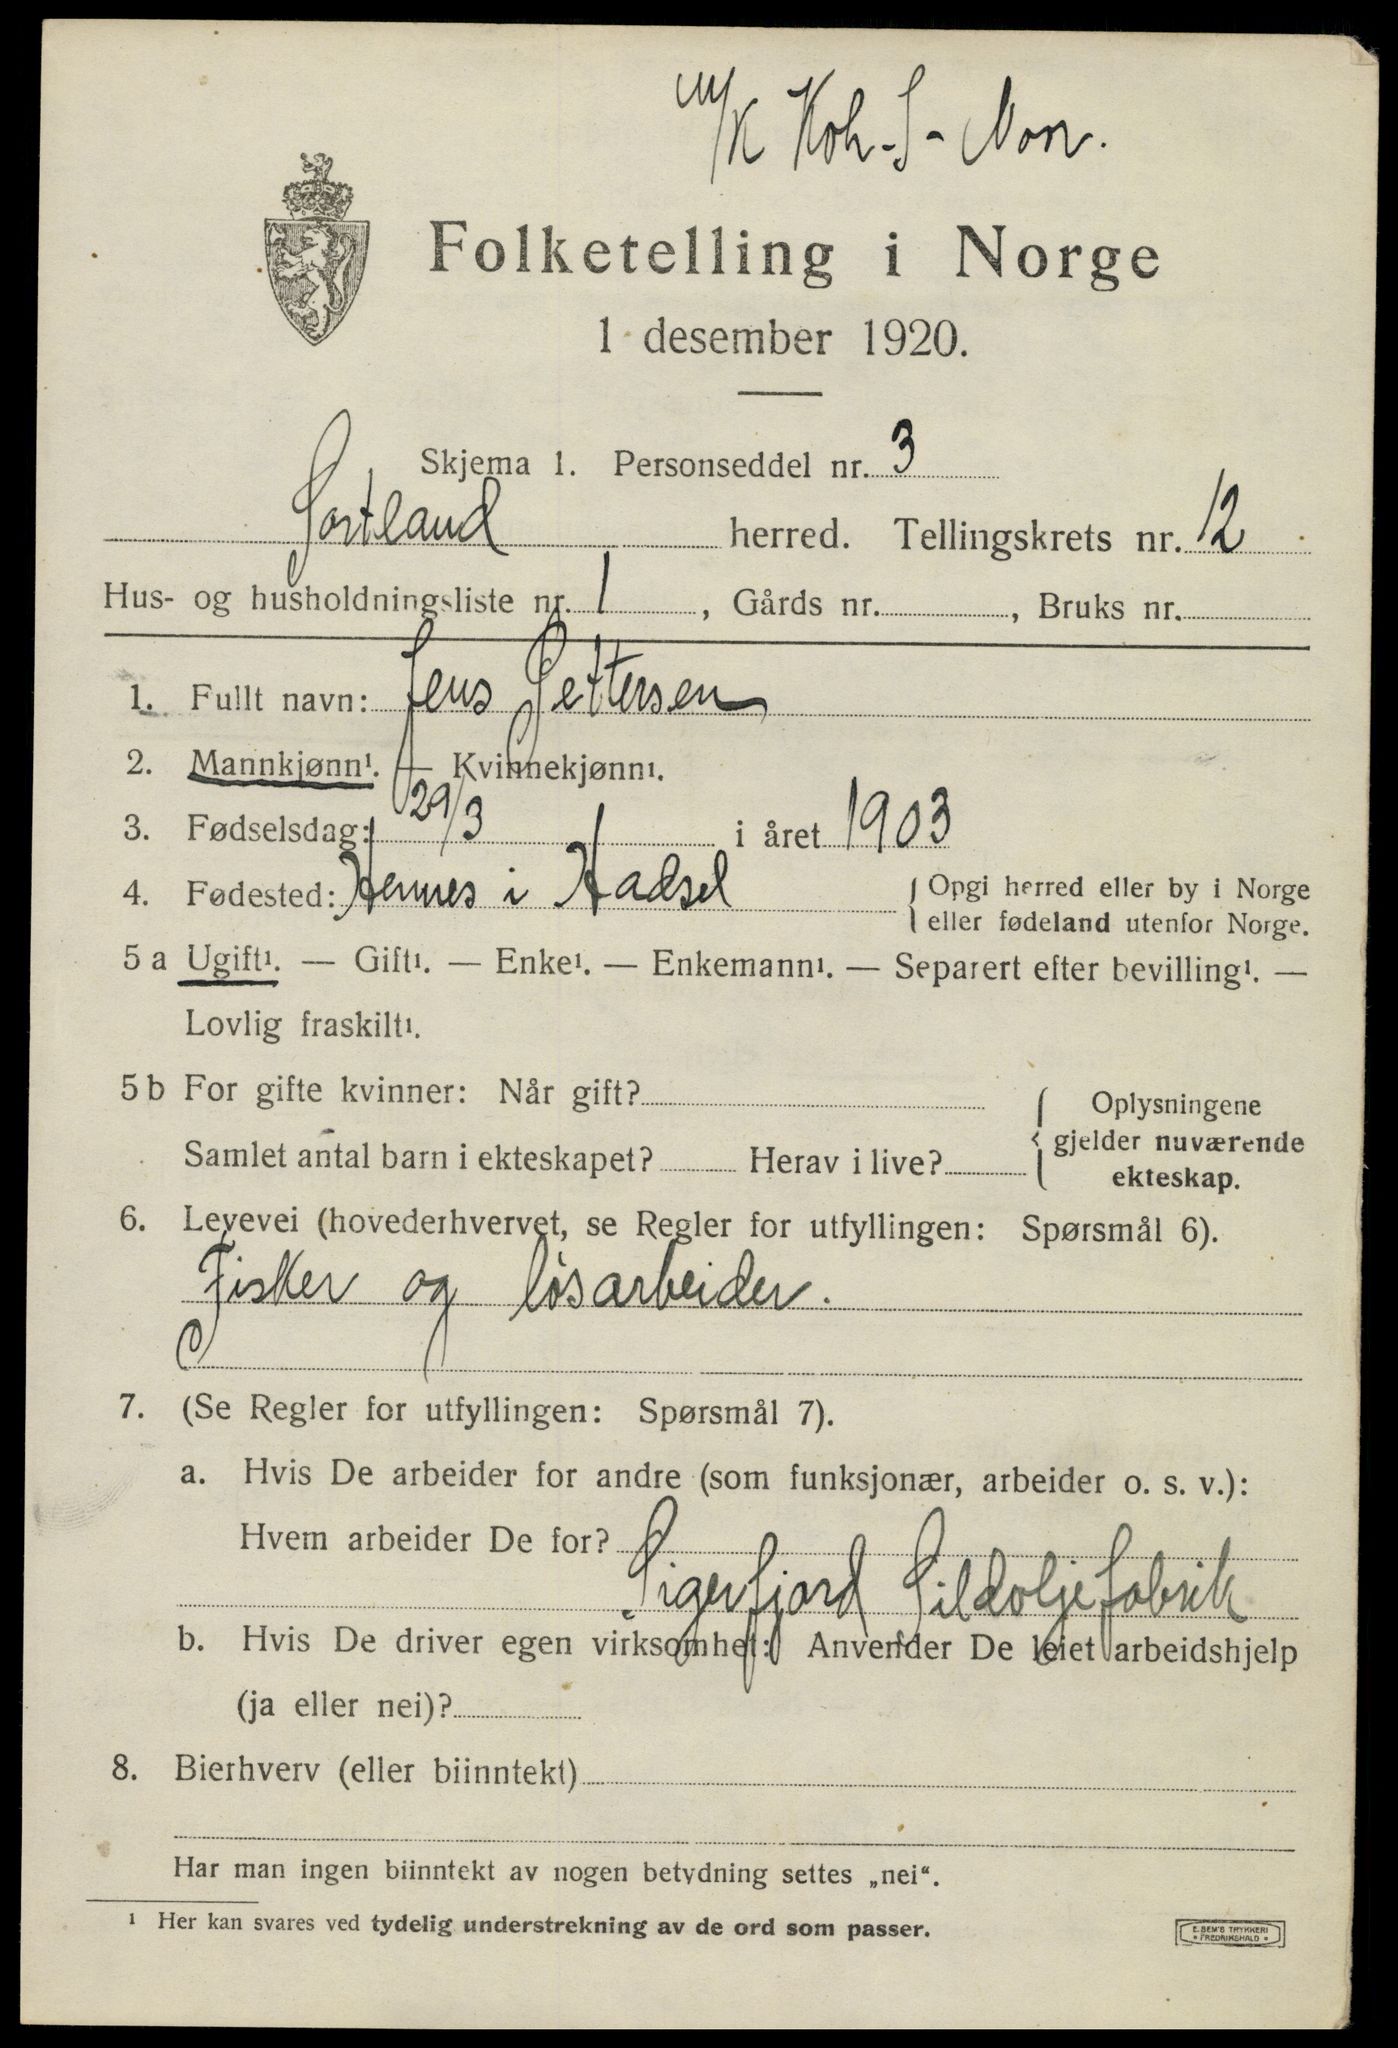 m/K Koh-S-Nor.
Folketelling i Norge
1 desember 1920.
Skjema 1. Personseddel nr. 3
Sortland herred. Tellingskrets nr. 12
Hus- og husholdningsliste nr. 1, Gårds nr. , Bruks nr.
1. Fullt navn: Jens Pettersen
2. Mannkjønn¹. — Kvinnekjønn¹.
3. Fødselsdag: 29/3 i året 1903
4. Fødested: Hennes i Hadsel { Opgi herred eller by i Norge
{ eller fødeland utenfor Norge.
5 a Ugift¹. — Gift¹. — Enke¹. — Enkemann¹. — Separert efter bevilling¹. —
Lovlig fraskilt¹.
5 b For gifte kvinner: Når gift? { Oplysningene
gjelder nuværende
Samlet antal barn i ekteskapet? Herav i live?
ekteskap.
6. Levevei (hovederhvervet, se Regler for utfyllingen: Spørsmål 6).
Fisker og løsarbeider.
7. (Se Regler for utfyllingen: Spørsmål 7).
a. Hvis De arbeider for andre (som funksjonær, arbeider o. s. v.):
Hvem arbeider De for?
Sigerfjord Sildoljefabrik
b. Hvis De driver egen virksomhet: Anvender De leiet arbeidshjelp
(ja eller nei)?
8. Bierhverv (eller biinntekt)
Har man ingen biinntekt av nogen betydning settes „nei“.
¹ Her kan svares ved tydelig understrekning av de ord som passer.
E. SEM'S TRYKKERI
* FREDRIKSHALD *